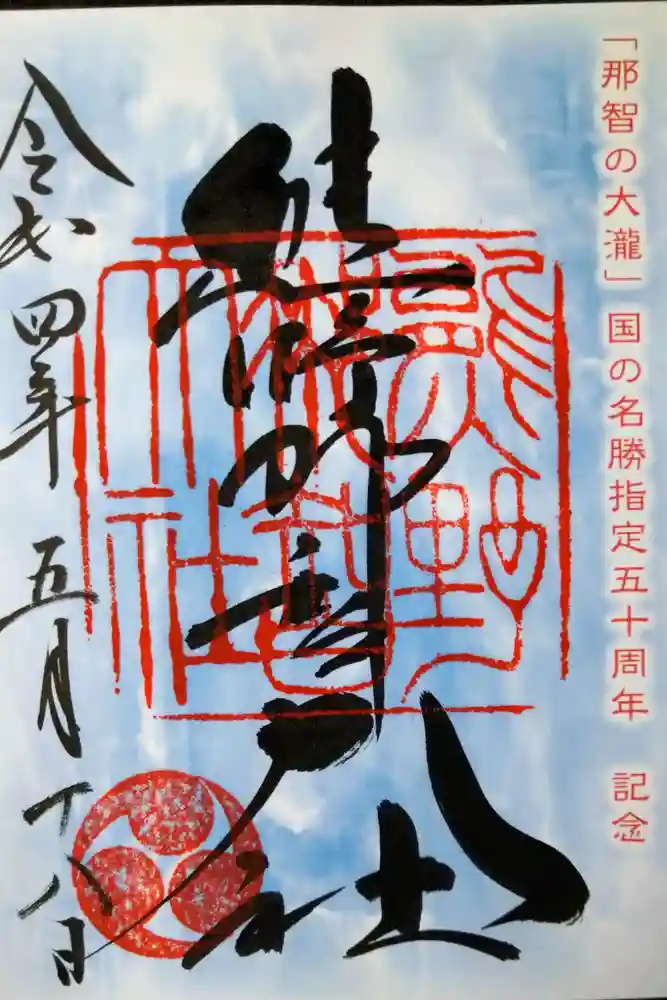 「那智の大瀧」国の名勝指定五十周年 記念
熊野那智大社
令和四年 五月十八日